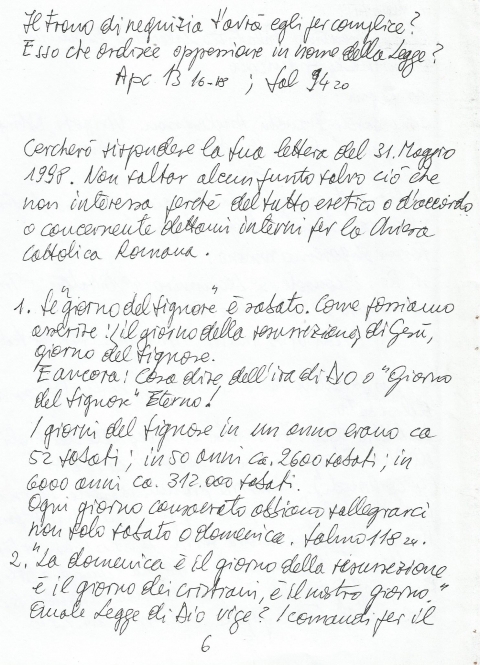 Il trono di nequizia t'avrà egli per complice?
Esso che ordisce oppressione in nome della Legge?
Apc 13 16-18 ; Sal 94 20
Cercherò rispondere la tua lettera del 31. Maggio
1998. Non saltar alcun punto salvo ciò che
non interessa perché del tutto eretico o d'accordo
o concernente dettami interni per la Chiesa
Cattolica Romana.
1. Il "giorno del Signore" è sabato. Come possiamo
asserire: il giorno della resurrezione di Gesù,
giorno del Signore.
E ancora: Cosa dire, dell'ira di DIO o "Giorno
del Signore" Eterno!
I giorni del Signore in un anno erano ca
52 sabati; in 50 anni ca. 2600 sabati; in
6000 anni ca. 312.000 sabati.
Ogni giorno consacrato abbiamo rallegrarci
non solo sabato o domenica. Salmo 118 24.
2. "La domenica è il giorno della resurrezione
è il giorno dei cristiani, è il nostro giorno."
Quale Legge di Dio vige? I comandi per il
6